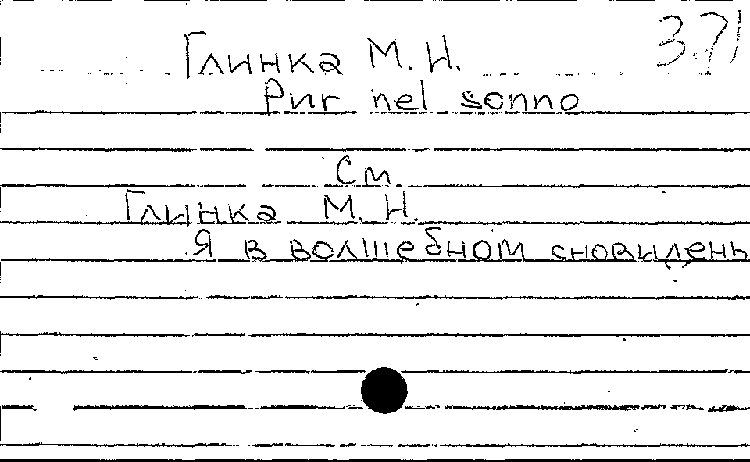 371
Глинка М. И.
Pur nel sonno
См.
Глинка М. И.
Я в волшебном сновиденье